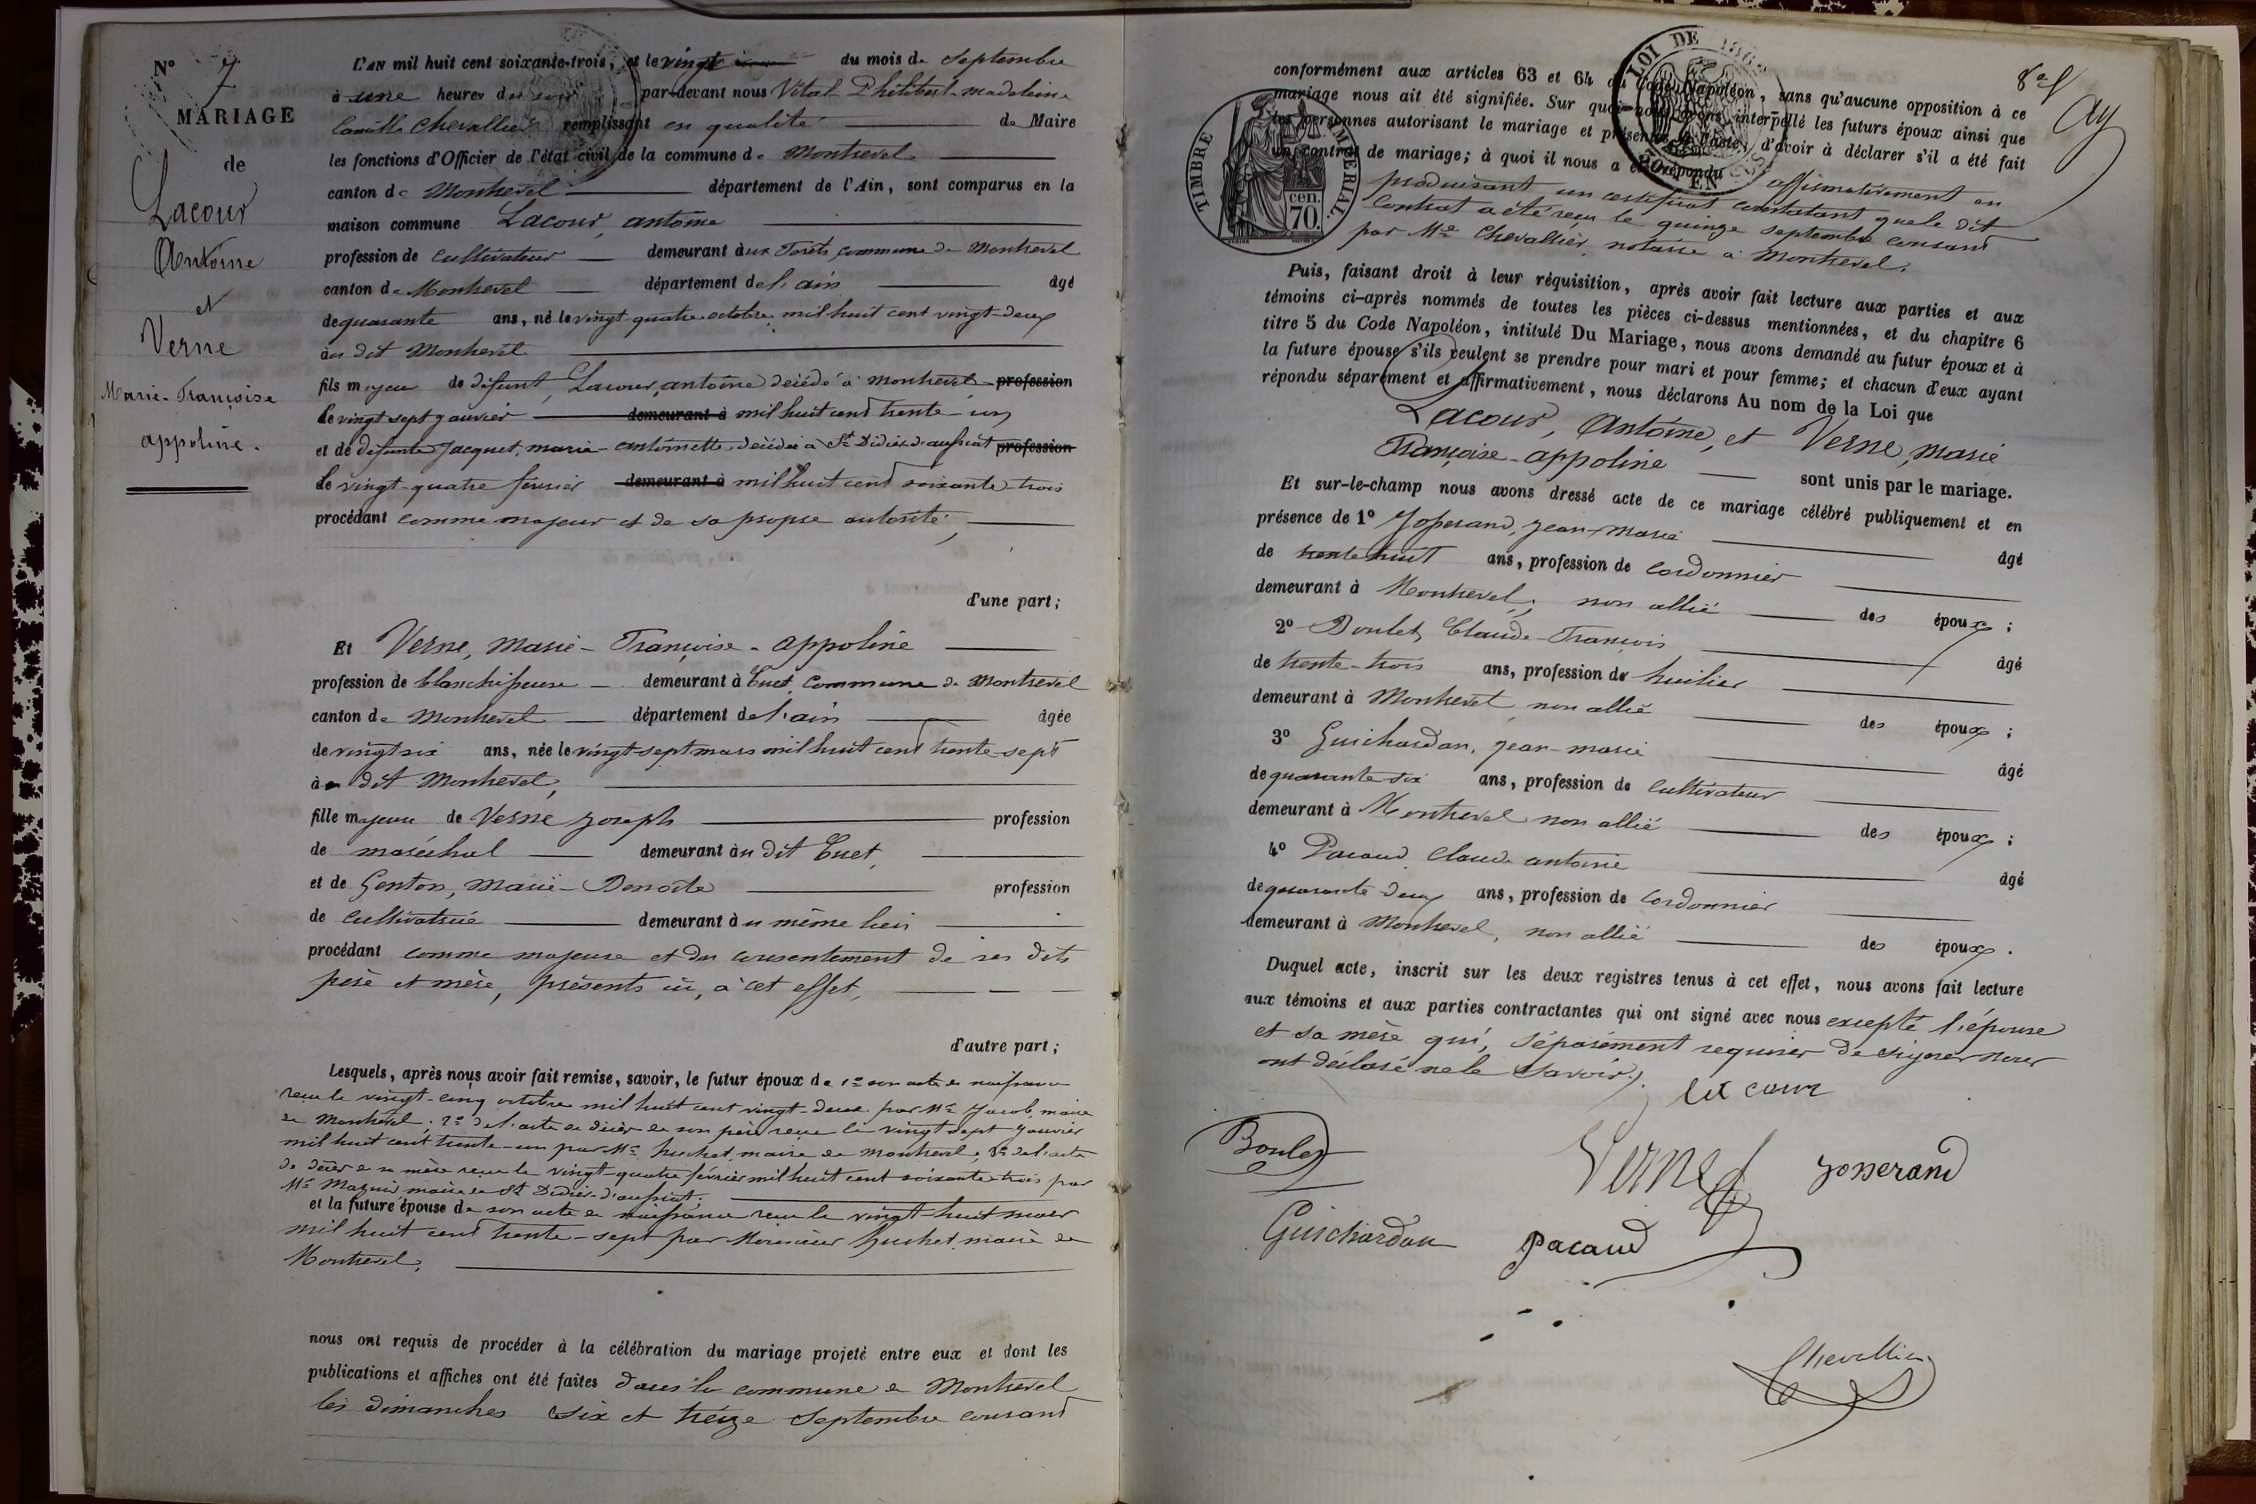 N° 7
MARIAGE
de
Lacour
Antoine
et
Verne
Marie-Françoise
appoline.
L'AN mil huit cent soixante-trois, et le vingt du mois de septembre
à une heures du soir par-devant nous Vital Philibert-madeleine
Camille Chevallier remplissant en qualité de Maire
les fonctions d'Officier de l'état civil de la commune de Montrevel
canton de Montrevel département de l'Ain, sont comparus en la
maison commune Lacour, antoine
profession de cultivateur demeurant aux Forêts, commune de Montrevel
canton de Montrevel département de l'ain âgé
de quarante ans, né le vingt quatre octobre mil huit cent vingt-deux
au dit Montrevel
fils majeur de défunt, Lacour, antoine décédé à Montrevel profession
le vingt sept janvier demeurant à mil huit cent trente-un
et de défunte Jacquet, marie-antoinette décédée à St Didier d'aussiat profession
le vingt-quatre février demeurant à mil huit cent soixante-trois
procédant comme majeur et de sa propre autorité,
d'une part;
Et Verne, Marie-Françoise-appoline
profession de blanchisseuse demeurant à Cuet, commune de Montrevel
canton de Montrevel département de l'ain âgée
de vingt six ans, née le vingt-sept mars mil huit cent trente-sept
au dit Montrevel,
fille majeure de Verne Joseph profession
de maréchal demeurant au dit Cuet,
et de Genton, Marie-Benoîte profession
de cultivatrice demeurant au même lieu
procédant comme majeure et du consentement de ses dits
père et mère, présents ici, à cet effet,
d'autre part;
Lesquels, après nous avoir fait remise, savoir, le futur époux de 1° son acte de naissance
reçu le vingt-cinq octobre mil huit cent vingt-deux par Mr Jacob, maire
de Montrevel; 2° de l'acte de décès de son père reçu le vingt sept janvier
mil huit cent trente-un par Mr huchet, maire de Montrevel; 3° de l'acte
de décès de sa mère reçu le vingt-quatre février mil huit cent soixante-trois par
Mr maire de St Didier-d'aussiat.
et la future épouse de son acte de naissance reçu le vingt-huit mars
mil huit cent trente-sept par Monsieur huchet, maire de
Montrevel,
nous ont requis de procéder à la célébration du mariage projeté entre eux et dont les
publications et affiches ont été faites dans la commune de Montrevel
les dimanches six et treize septembre courant
LOI DE
TIMBRE IMPERIAL.
70 cen.
conformément aux articles 63 et 64 du Code Napoléon, sans qu'aucune opposition à ce
mariage nous ait été signifiée. Sur quoi nous avons interpellé les futurs époux ainsi que
les personnes autorisant le mariage et présentes à l'acte, d'avoir à déclarer s'il a été fait
un contrat de mariage; à quoi il nous a été répondu affirmativement en
produisant un certificat constatant que le dit
contrat a été reçu le quinze septembre courant
par Me Chevallier, notaire à Montrevel.
Puis, faisant droit à leur réquisition, après avoir fait lecture aux parties et aux
témoins ci-après nommés de toutes les pièces ci-dessus mentionnées, et du chapitre 6
titre 5 du Code Napoléon, intitulé Du Mariage, nous avons demandé au futur époux et à
la future épouse s'ils veulent se prendre pour mari et pour femme; et chacun d'eux ayant
répondu séparément et affirmativement, nous déclarons Au nom de la Loi que
Lacour, Antoine, et Verne, Marie
Françoise-appoline sont unis par le mariage.
Et sur-le-champ nous avons dressé acte de ce mariage célébré publiquement et en
présence de 1° Josserand, Jean-Marie âgé
de trente huit ans, profession de cordonnier
demeurant à Montrevel; non allié des époux;
2° Boulet, Claude-François âgé
de trente-trois ans, profession de huilier
demeurant à Montrevel non allié des époux;
3° Guichardan, Jean-marie âgé
de quarante six ans, profession de cultivateur
demeurant à Montrevel non allié des époux;
4° Pacaud, Claude antoine âgé
de quarante deux ans, profession de cordonnier
demeurant à Montrevel, non allié des époux.
Duquel acte, inscrit sur les deux registres tenus à cet effet, nous avons fait lecture
aux témoins et aux parties contractantes qui ont signé avec nous excepté l'épouse
et sa mère qui, séparément requises de signer nous
ont déclaré ne le savoir.
la cour
Boulet
Verne
Josserand
Guichardan
Pacaud
Chevallier